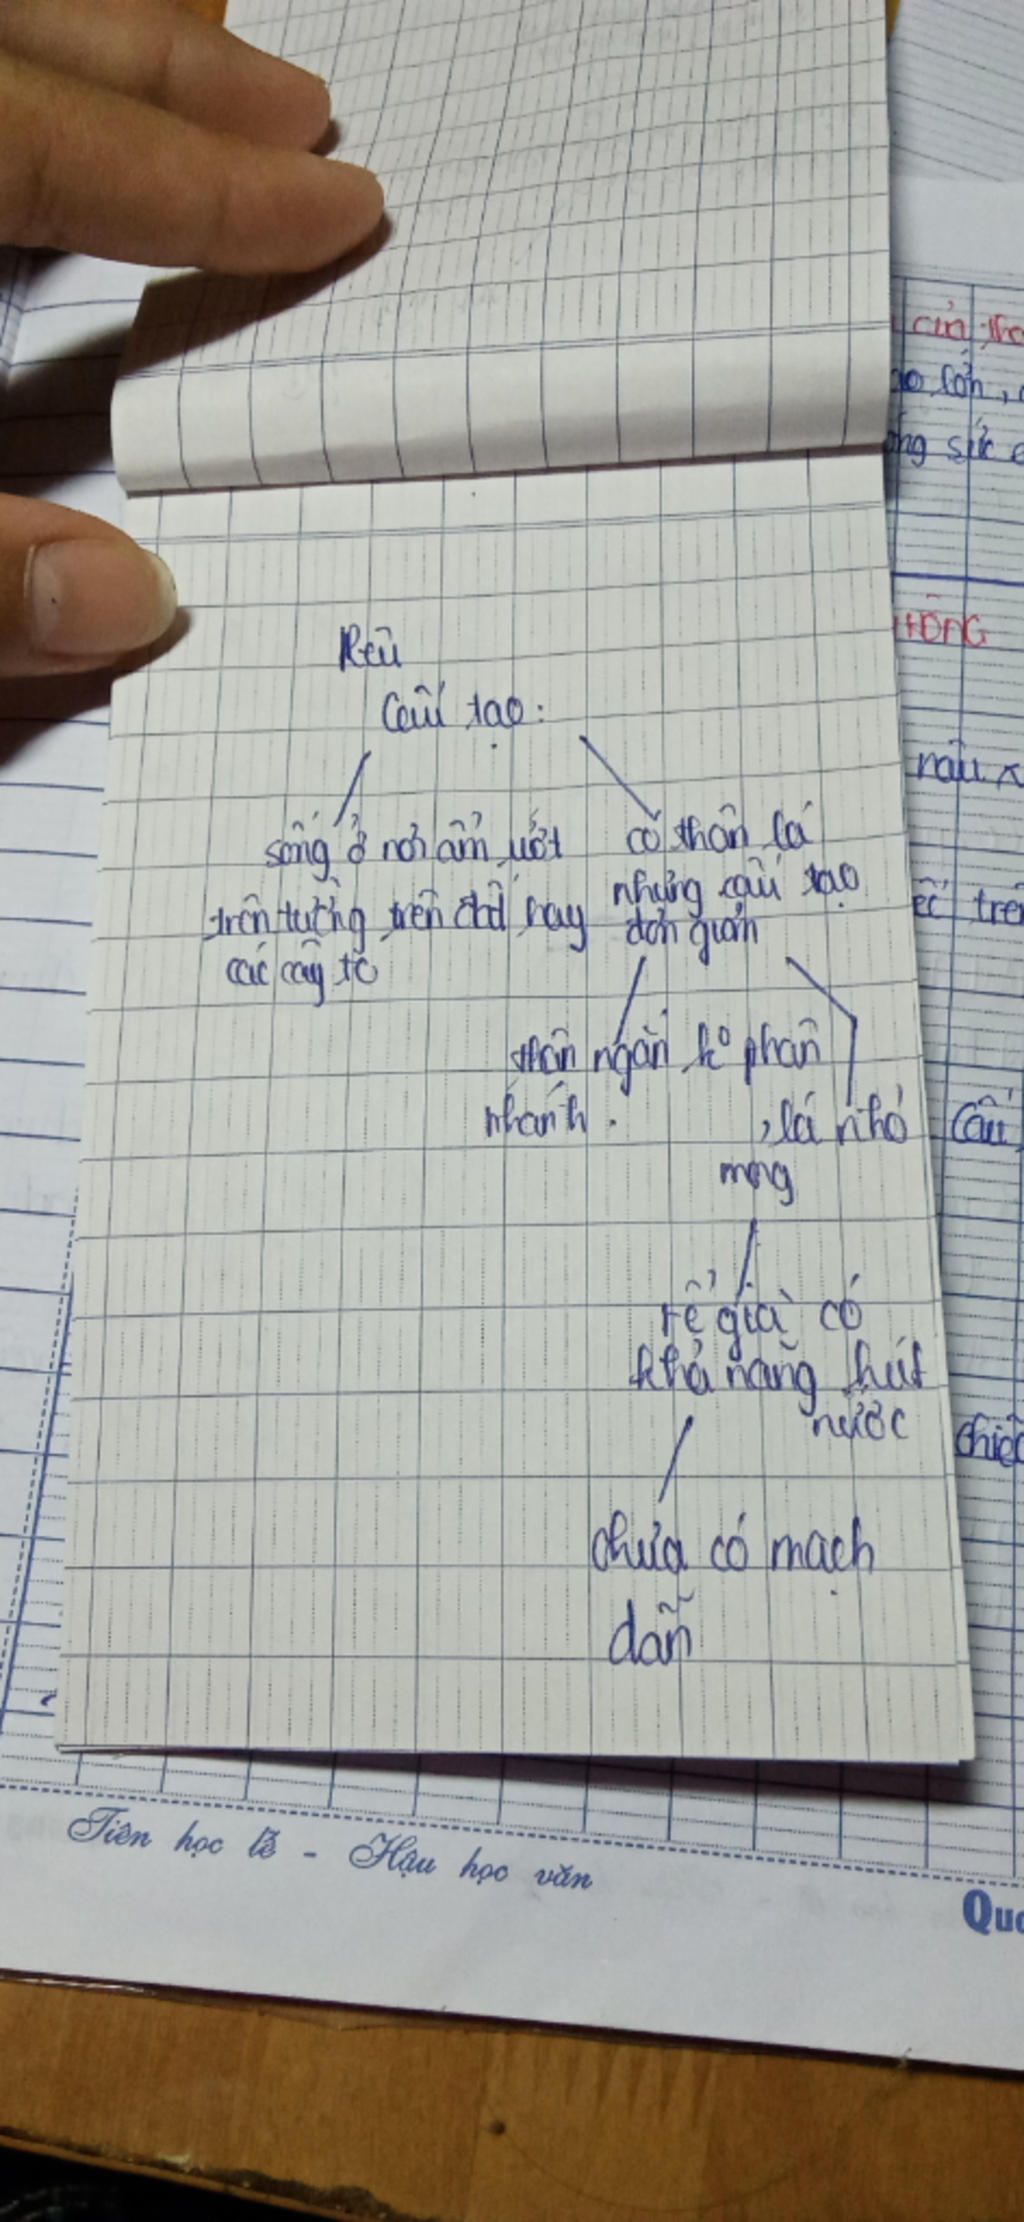 Rêu
Cấu tạo:
sống ở nơi ẩm ướt
trên tường trên đất hay
các cây to
có thân lá
nhưng cấu tạo
đơn giản
thân ngắn ko phân
nhánh.
, lá nhỏ
mỏng
rễ giả có
khả năng hút
nước
chưa có mạch
dẫn
của
lớn,
sức
nâu
trên
Cấu
Tiên học lễ - Hậu học văn